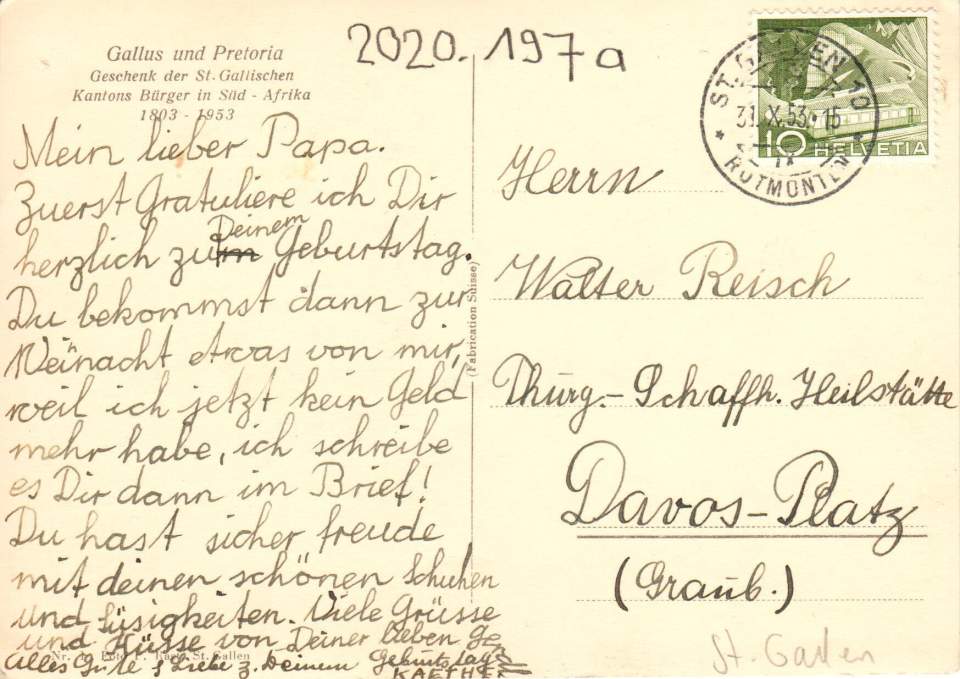 Gallus und Pretoria
Geschenk der St. Gallischen
Kantons Bürger in Süd - Afrika
1803 - 1953
2020.197a
ST. GALLEN 10
31.X.53.-15
ROTMONTEN
10 HELVETIA
Mein lieber Papa.
Zuerst Gratuliere ich Dir
herzlich zu Deinem Geburtstag.
Du bekommst dann zur
Weihnacht etwas von mir,
weil ich jetzt kein Geld
mehr habe, ich schreibe
es Dir dann im Brief!
Du hast sicher freude
mit deinen schönen Schuhen
und süsigkeiten. Viele Grüsse
und Küsse von Deiner lieben
Nr. Foto St. Gallen
Alles Liebe z. Deinem Geburtstag
KAETHE
(Fabrication Suisse)
Herrn
Walter Reisch
Thurg.-Schaffh. Heilstätte
Davos-Platz
(Graub.)
St. Gallen